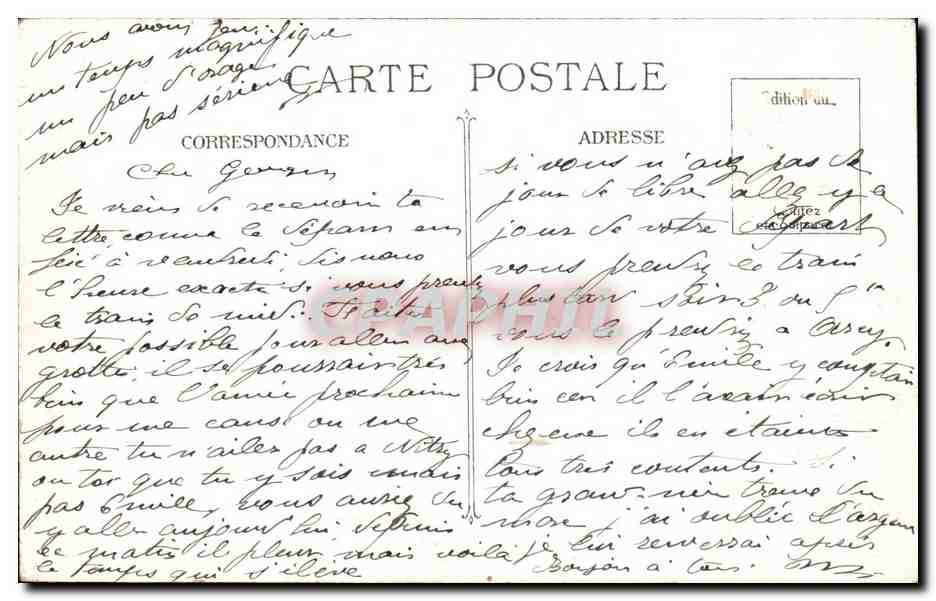 Nous avons
un temps magnifique
un peu d'orage
mais pas sérieux
CARTE POSTALE
CORRESPONDANCE
ADRESSE
dition du
itez
Je viens de recevoir ta
lettre, comme le départ
à vendredi, dis nous
l'heure exacte si vous prenez
le train de midi... Faites
votre possible pour aller aux
grottes, il se pourrait très
bien que l'année prochaine
pour une cause ou une
autre tu n'ailles pas a Nitry
ou toi que tu y sois mais
pas Emile, vous auriez du
y aller aujourd'hui, depuis
ce matin il pleut mais voilà
le temps qui s'élève
si vous n'avez pas de
jour de libre allez y le
jour de votre départ
vous prendrez le train
plus tard soir 3 ou 5h
vous le prendrez a Arcy.
Je crois qu'Emile y comptait
bien car il l'avait écrit
ils en étaient
tous très contents. Si
ta grand-mère trouve du
j'ai oublié l'argent
je lui renverrai après
Bonjour à tous.
CPAPHIL